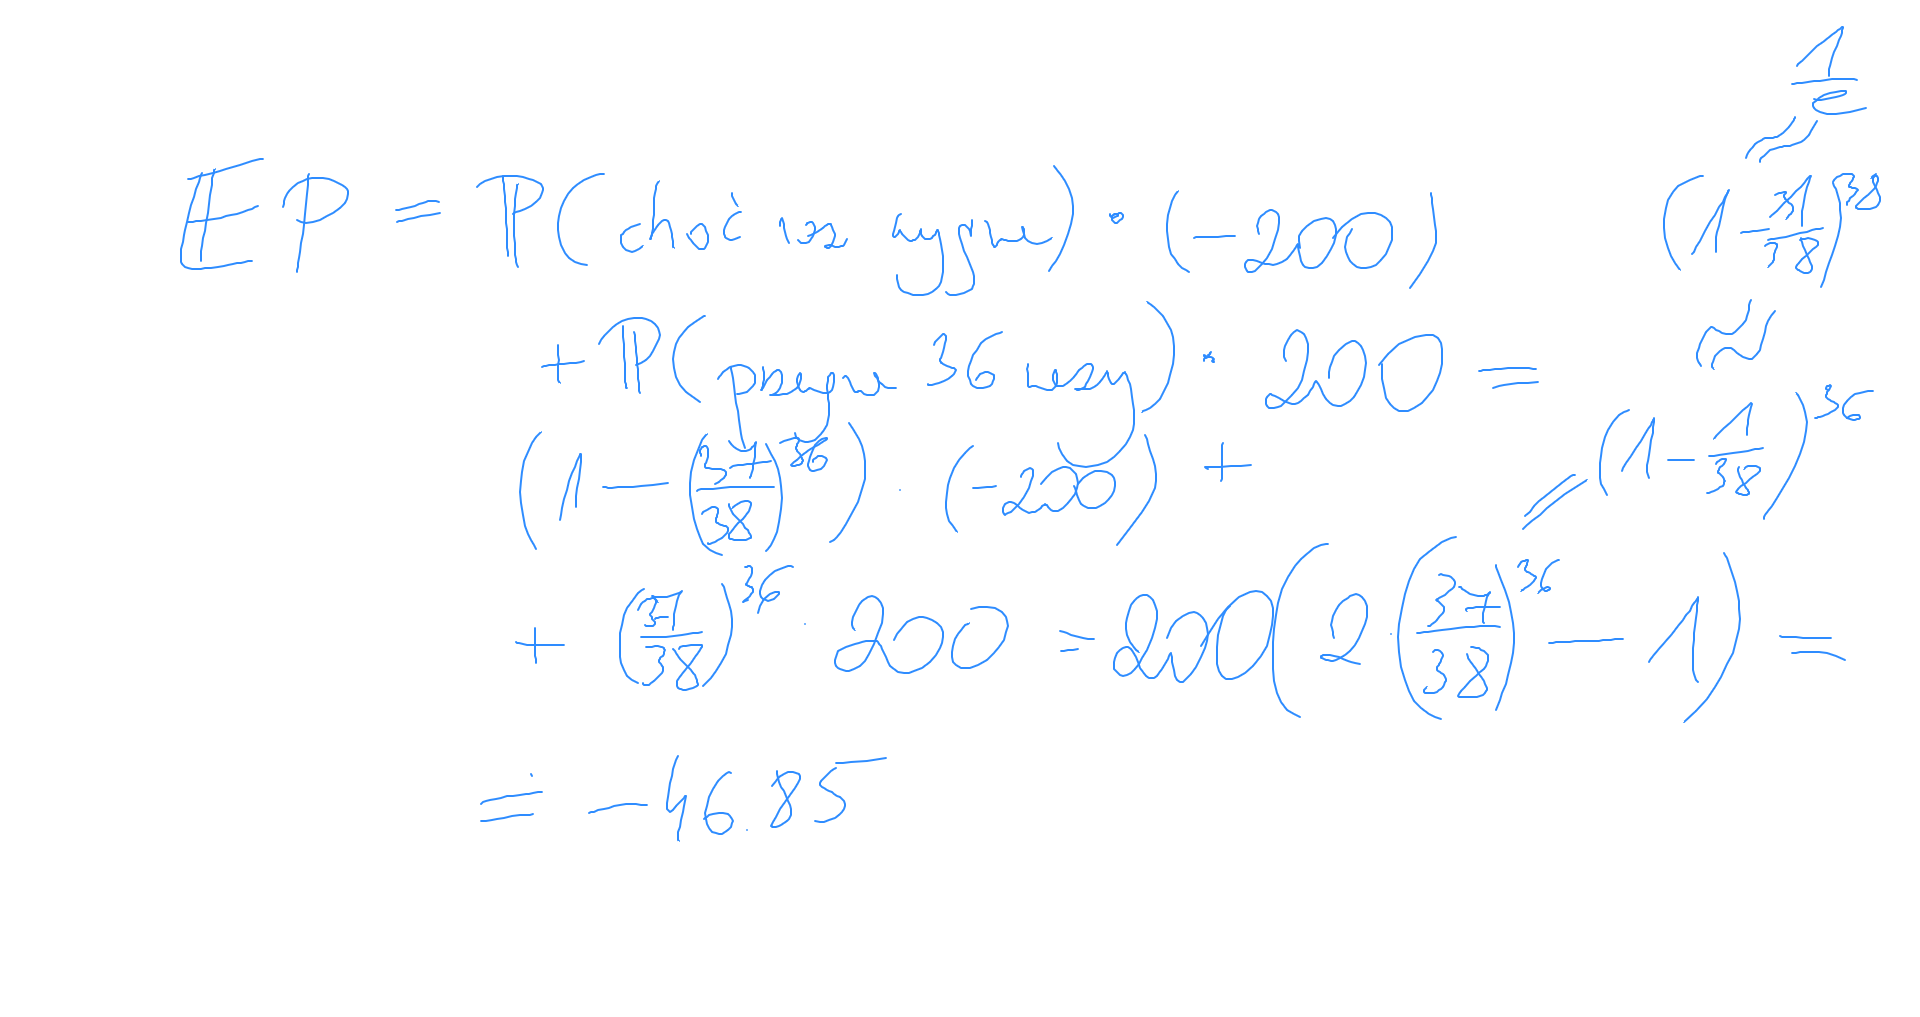 EP = ℙ(choć raz wygra) · (-200)
+ ℙ(przegra 36 razy) · 200 =
(1 - (37/38)^36) · (-200) +
+ (37/38)^36 · 200 = 200(2 · (37/38)^36 - 1) =
≐ -46.85
1/e
≈
(1 - 1/38)^38
≈
(1 - 1/38)^36
=